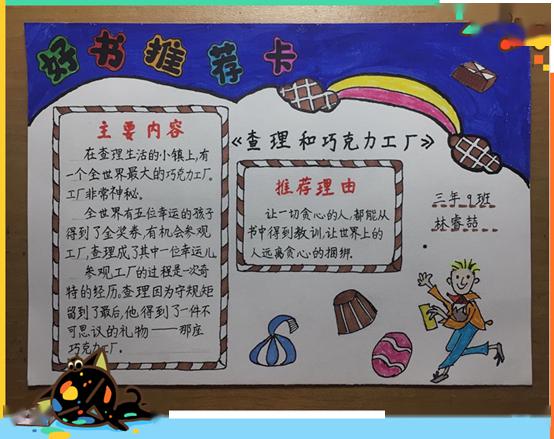 好书推荐卡
《查理和巧克力工厂》
主要内容
在查理生活的小镇上,有
一个全世界最大的巧克力工厂。
工厂非常神秘。
全世界有五位幸运的孩子
得到了金奖券,有机会参观
工厂,查理成了其中一位幸运儿
参观工厂的过程是一次奇
特的经历。查理因为守规矩
留到了最后,他得到了一件不
可思议的礼物——那座
巧克力工厂。
推荐理由
让一切贪心的人,都能从
书中得到教训,让世界上的
人远离贪心的捆绑。
三年9班
林睿喆